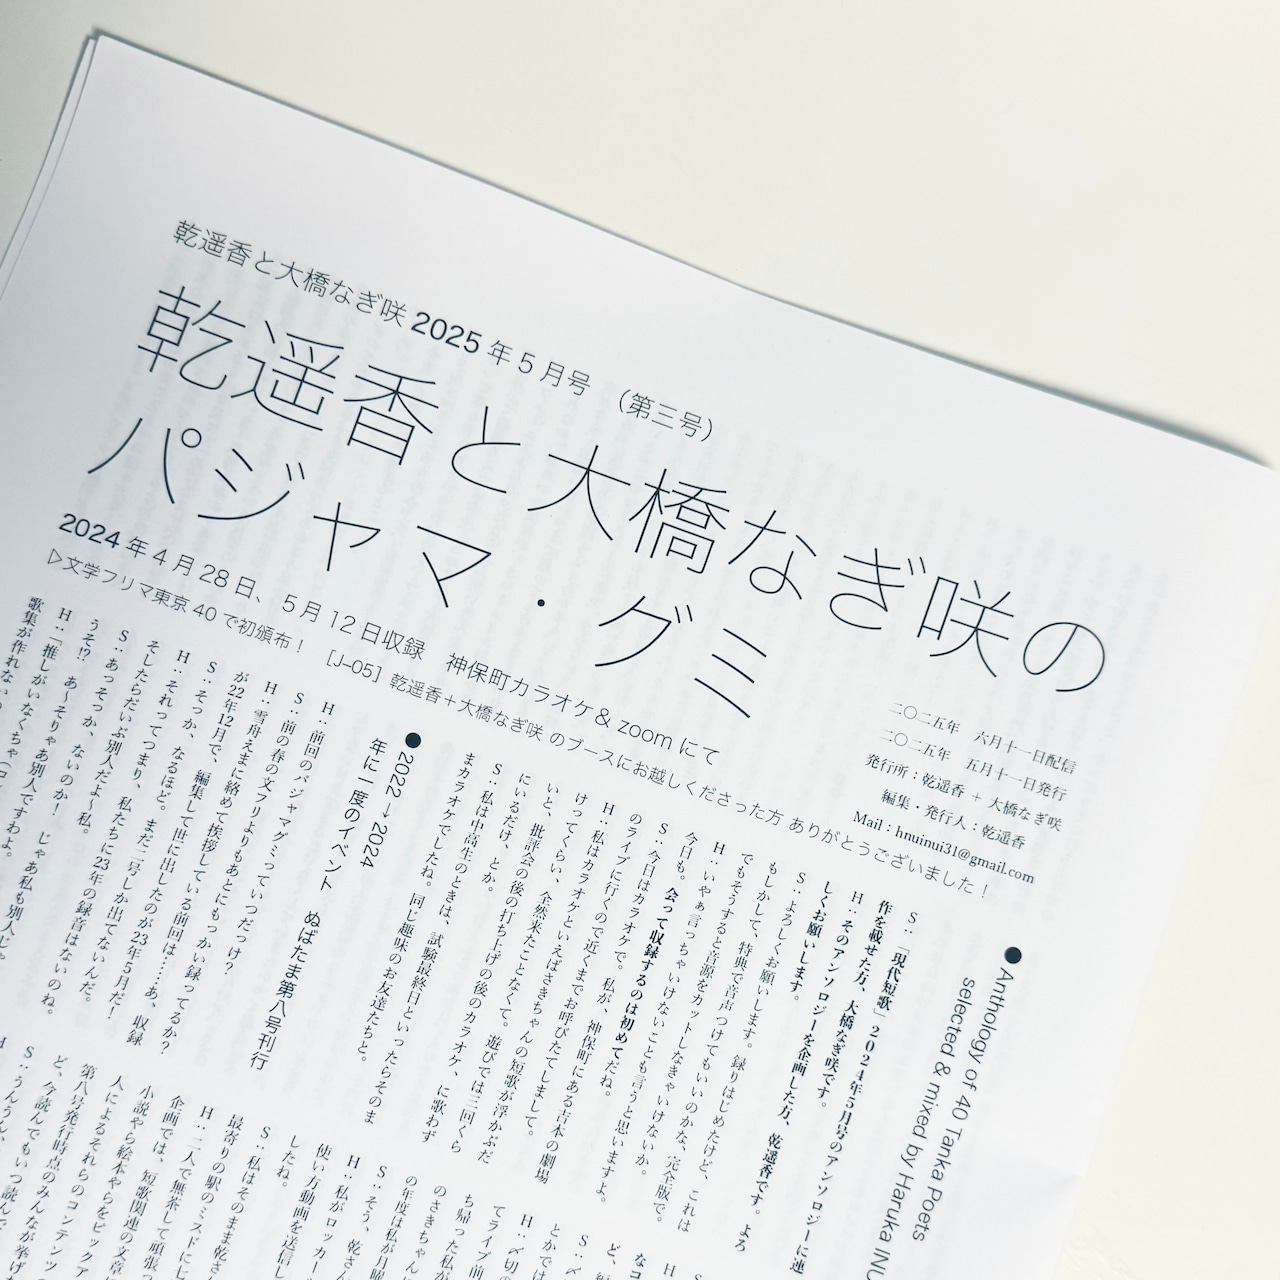 乾遥香と大橋なぎ咲 2025 年 5 月号 (第三号)
乾遥香と大橋なぎ咲の
パジャマ・グミ
2024 年 4 月 28 日、 5 月 12 日収録 神保町カラオケ& zoom にて
▷文学フリマ東京 40 で初頒布! [J-05] 乾遥香+大橋なぎ咲 のブースにお越しくださった方 ありがとうございました!
二〇二五年 六月十一日配信
二〇二五年 五月十一日発行
発行所:乾遥香 + 大橋なぎ咲
編集・発行人:乾遥香
Mail:hnuinui31@gmail.com
●Anthology of 40 Tanka Poets
selected & mixed by Haruka INU
S:「現代短歌」2024年5月号のアンソロジーに連
作を載せた方、大橋なぎ咲です。
H:そのアンソロジーを企画した方、乾遥香です。よろ
しくお願いします。
S:よろしくお願いします。録りはじめたけど、これは
もしかして、特典で音声つけてもいいのかな、完全版で。
でもそうすると音源をカットしなきゃいけないか。
H:いやぁ言っちゃいけないことも言うと思いますよ。
今日も。会って収録するのは初めてだね。
S:今日はカラオケで。私が、神保町にある吉本の劇場
のライブに行くので近くまでお呼びたてしまして。
H:私はカラオケといえばさきちゃんの短歌が浮かぶだ
けってくらい、全然来たことなくて。遊びでは三回くら
いと、批評会の後の打ち上げの後のカラオケ、に歌わず
にいるだけ、とか。
S:私は中高生のときは、試験最終日といったらそのま
まカラオケでしたね。同じ趣味のお友達たちと。
●2022→2024
年に一度のイベント ぬばたま第八号刊行
H:前回のパジャマグミっていつだっけ?
S:前の春の文フリよりもあとにもっかい録ってるか?
H:雪舟えまに絡めて挨拶している前回は……あ、収録
が22年12月で、編集して世に出したのが23年5月だ!
S:そっか、なるほど。まだ二号しか出てないんだ。
H:それってつまり、私たちに23年の録音はないのね。
そしたらだいぶ別人だよ〜私。
S:あっそっか、ないのか! じゃあ私も別人じゃ
うそ!? あ〜そりゃあ別人ですわよ。
H:「推しがいなくちゃ
歌集が作れない
S:
H:〆切の
てライブ前
ち帰った私が
のさきちゃん
の年度は私が月曜
S:そう、乾さん
H:私がロッカー
使い方動画を送信し
したね。
S:私はそのまま乾さん
最寄りの駅のミスドに七
H:二人で無茶して頑張っ
企画では、短歌関連の文章に
小説やら絵本やらをピックア
人によるそれらのコンテンツの
第八号発行時点のみんなが挙げ
ど、今読んでもいつ読んで
S:うんうん、